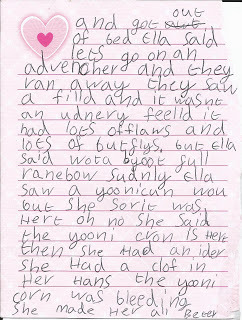 out
and got
of bed Ella said
lets go on an
advencher and they
ran away they saw
a filld and it wasnt
an udnery feelld it
had lots offlaws and
lots of butflys, but Ella
said wota byoot full
ranebow sudnly Ella
saw a yoonicun wou
but she sor it was
Hert oh no she said
the yooni cron is Hert
then she Had an ider
she Had a clof in
Her Hans the yooni
corn was bleeding
she made Her all Beter